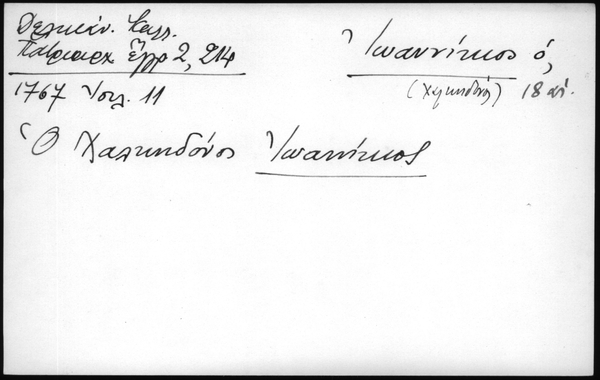 Δελικάν. Καλλ.
Πατριαρχ. Ἔγγρ 2, 214
1767 Ἰουλ. 11
Ἰωαννίκιος ὁ,
(Χαλκηδόνος) 18 αἰ.
Ὁ Χαλκηδόνος Ἰωαννίκιος